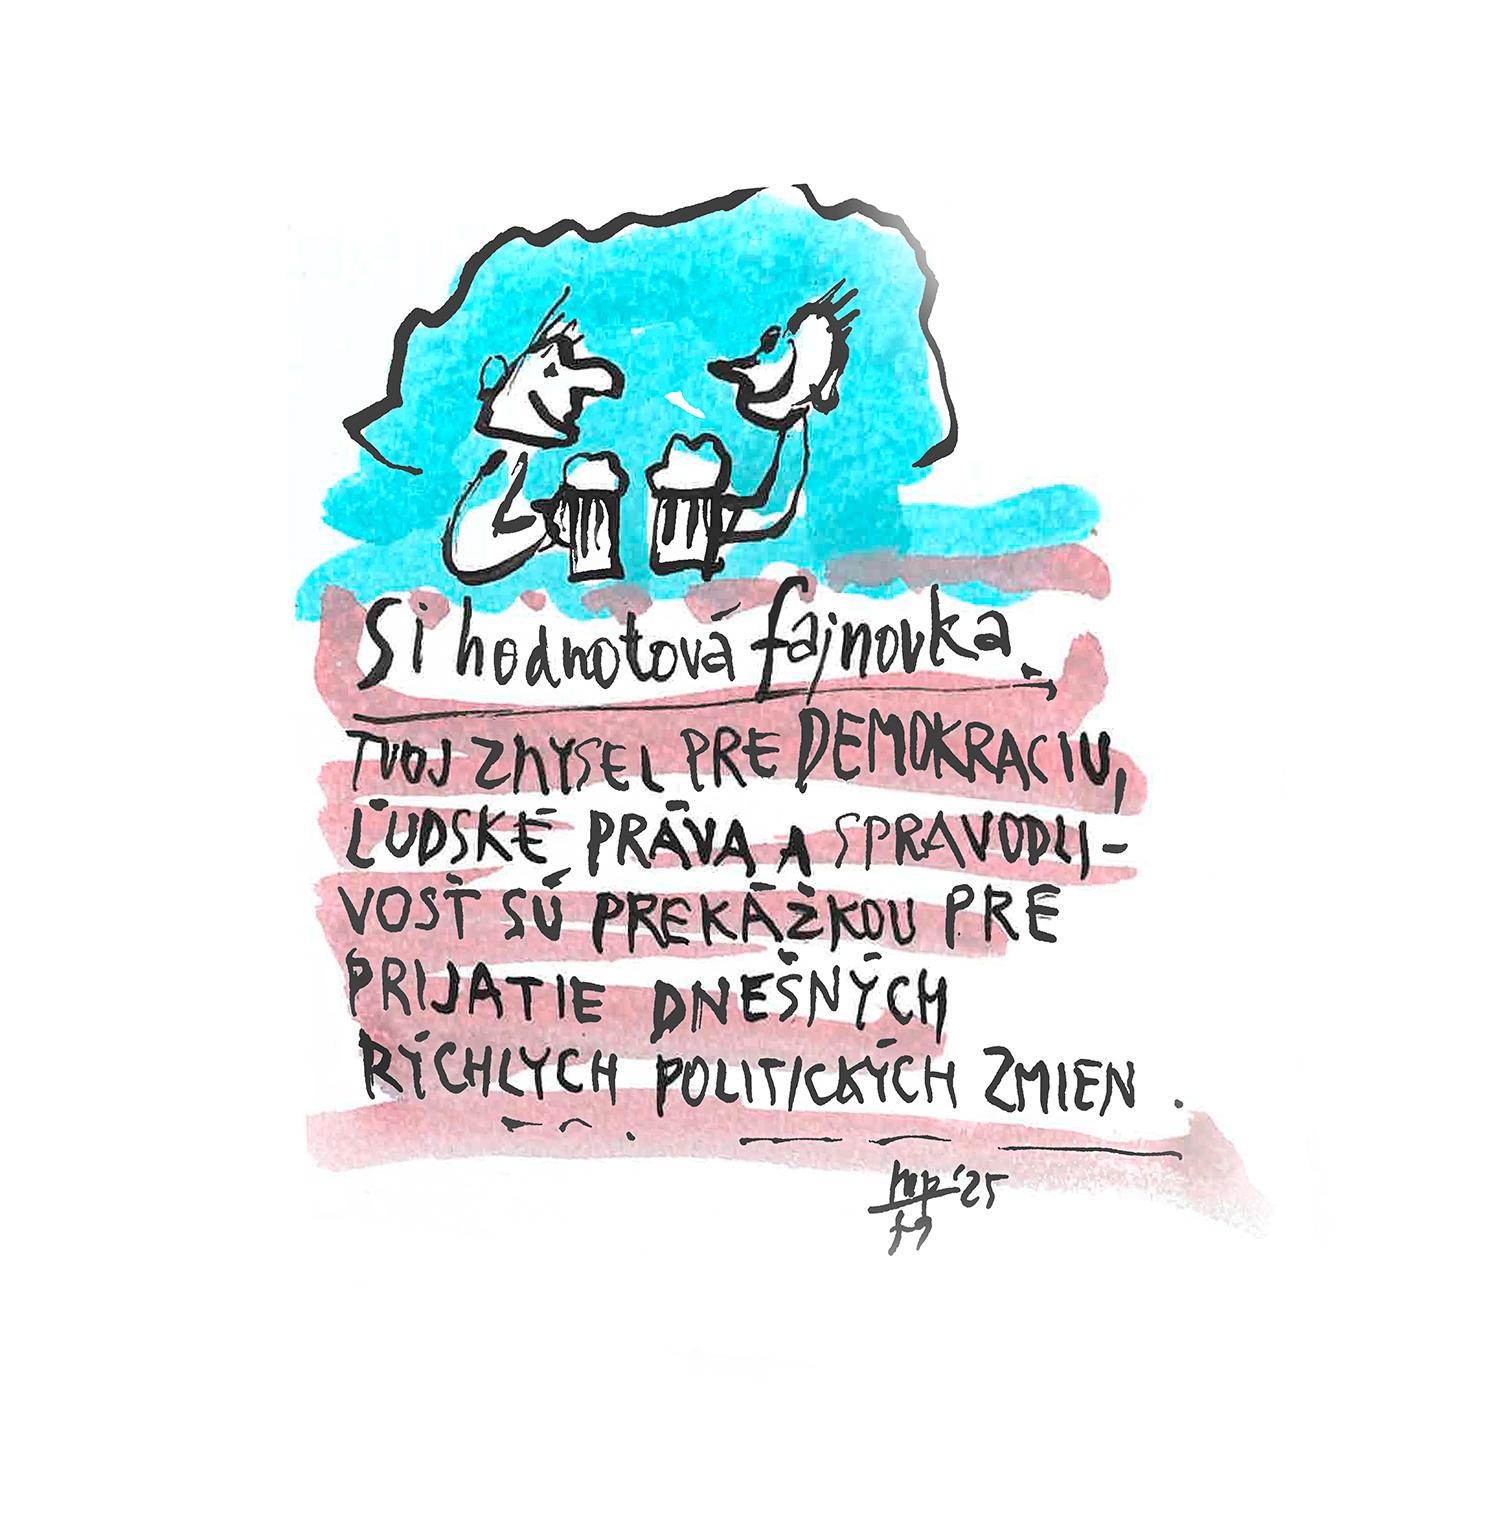 Si hodnotová fajnovka.
TVOJ ZMYSEL PRE DEMOKRACIU,
ĽUDSKÉ PRÁVA A SPRAVODLI-
VOSŤ SÚ PREKÁŽKOU PRE
PRIJATIE DNEŠNÝCH
RÝCHLYCH POLITICKÝCH ZMIEN.
'25